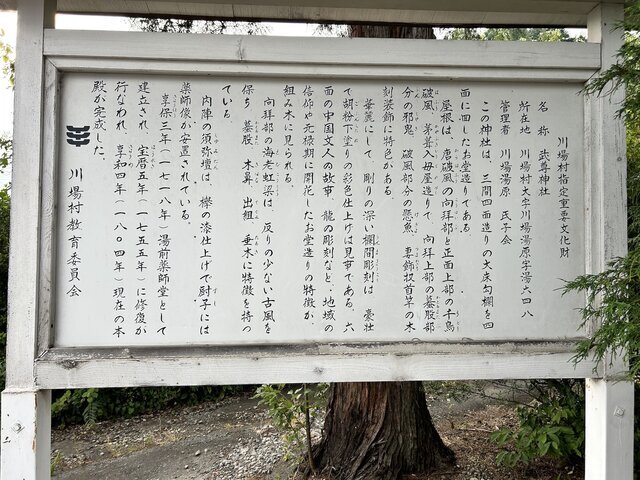 川場村指定重要文化財
名称 武尊神社
所在地 川場村大字川場湯原字湯六四八
管理者 川場湯原 氏子会
この神社は、三間四面造りの大床勾欄を四
面に回したお堂造りである。
屋根は、唐破風の向拝部と正面上部の千鳥
破風、茅葺入母屋造りで、向拝上部の蟇股部
分の邪鬼、破風部分の懸魚、妻飾扠首竿の木
刻装飾に特色がある。
華麗にして、彫りの深い欄間彫刻は、豪壮
で胡粉下塗りの彩色仕上げは見事である。六
面の中国文人の故事、龍の彫刻など、地域の
信仰や元禄期に開花したお堂造りの特徴が、
組み木に見られる。
向拝部の海老虹梁は、反りの少ない古風を
保ち、蟇股、木鼻、出組、垂木に特徴を持っ
ている。
内陣の須弥壇は、欅の漆仕上げで厨子には
薬師像が安置されている。
享保三年(一七一八年)湯前薬師堂として
建立され、宝暦五年(一七五五年)に修復が
行なわれ、享和四年(一八〇四年)現在の本
殿が完成した。
川場村教育委員会